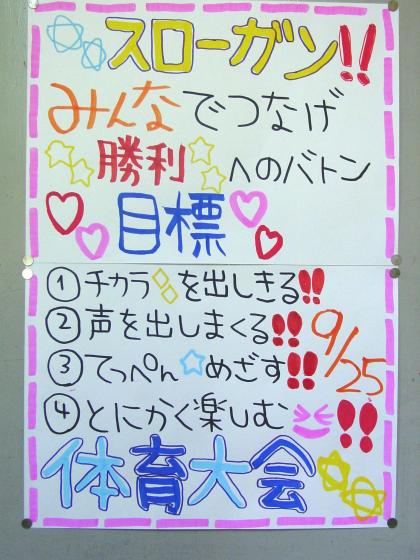 スローガン!!
みんなでつなげ
勝利へのバトン
目標
①チカラを出しきる!!
②声を出しまくる!!
③てっぺんめざす!!
④とにかく楽しむ!!
9/25
体育大会